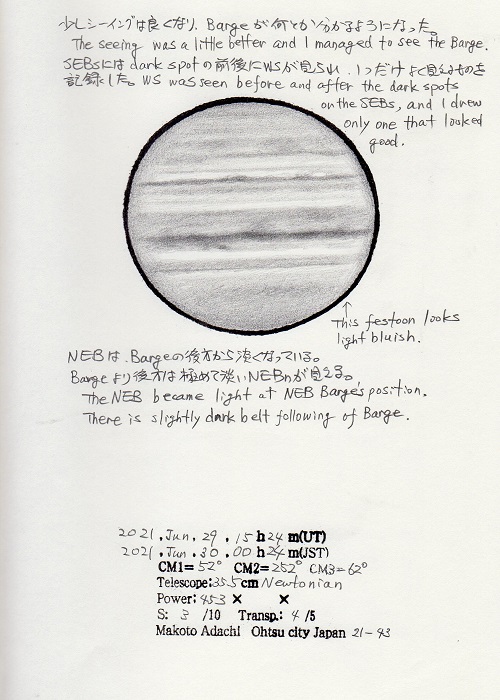 少しシーイングは良くなり、Bargeが何とか分かるようになった。
The seeing was a little better and I managed to see the Barge.
SEBsにはdark spotの前後にWSが見られ、1つだけよく見えるものを
記録した。WS was seen before and after the dark spots
on the SEBs, and I drew
only one that looked
good.
↑
This festoon looks
light bluish.
NEBは、Bargeの後方から淡くなっている。
Bargeより後方は極めて淡いNEBnが見える。
The NEB became light at NEB Barge's position.
There is slightly dark belt following of Barge.
2021.Jun.29.15h24m(UT)
2021.Jun.30.00h24m(JST)
CM1=52° CM2=252° CM3=62°
Telescope:35.5cm Newtonian
Power:453× ×
S: 3 /10 Transp.: 4 /5
Makoto Adachi Ohtsu city Japan 21-43